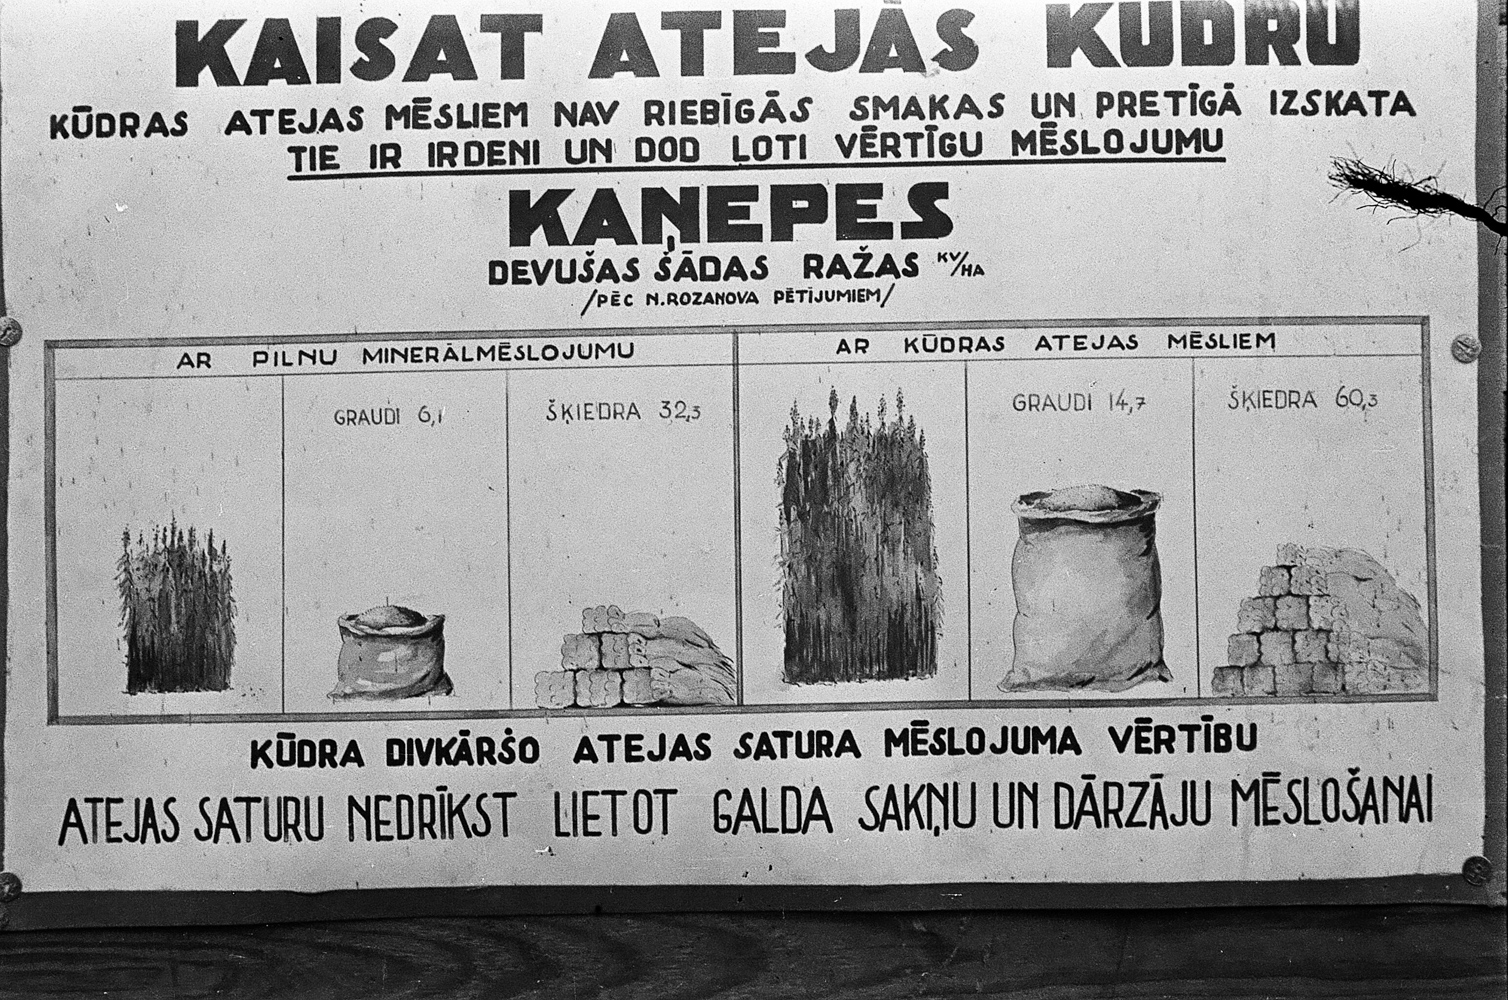 KAISAT ATEJĀS KŪDRU
KŪDRAS ATEJAS MĒSLIEM NAV RIEBĪGĀS SMAKAS UN PRETĪGĀ IZSKATA
TIE IR IRDENI UN DOD ĻOTI VĒRTĪGU MĒSLOJUMU
KAŅEPES
DEVUŠAS ŠĀDAS RAŽAS KV/HA
/PĒC N.ROZANOVA PĒTĪJUMIEM/
AR PILNU MINERĀLMĒSLOJUMU
AR KŪDRAS ATEJAS MĒSLIEM
GRAUDI 6,1
ŠĶIEDRA 32,3
GRAUDI 14,7
ŠĶIEDRA 60,3
KŪDRA DIVKĀRŠO ATEJAS SATURA MĒSLOJUMA VĒRTĪBU
ATEJAS SATURU NEDRĪKST LIETOT GALDA SAKŅU UN DĀRZĀJU MĒSLOŠANAI